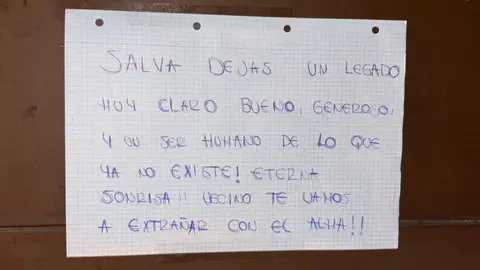 SALVA DEJAS UN LEGADO
MUY CLARO BUENO, GENEROSO,
Y UN SER HUMANO DE LO QUE
YA NO EXISTE! ETERNA
SONRISA!! VECINO TE VAMOS
A EXTRAÑAR CON EL ALMA!!